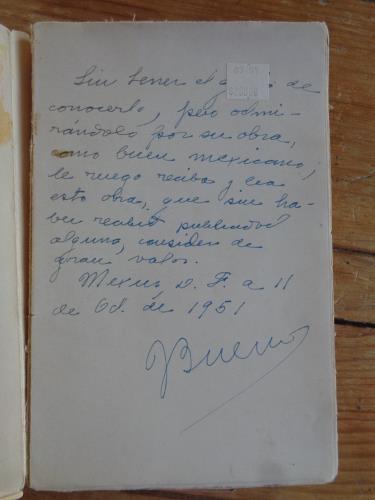 Sin tener el de
conocerlo, pero admi-
rándolo por su obra,
como buen mexicano,
le ruego reciba y lea
esta obra, que sin ha-
ber recibido publicidad
alguna, considero de
gran valor.
México, D. F. a 11
de Oct. de 1951
Bueno